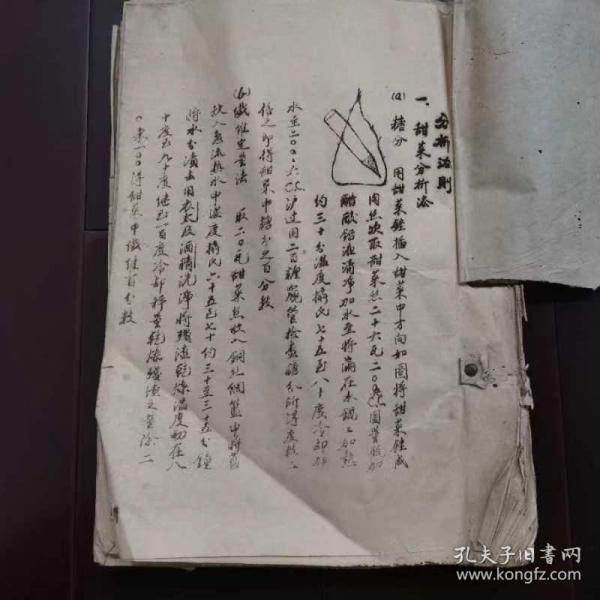 分析法則
一、甜菜分析法
(a) 糖分 用甜菜錐插入甜菜中方向如圖將甜菜錐成
肉絲狀取甜菜絲二十六瓦二〇〇cc圓質瓶加
醋酸鉛液清淨加水至將滿在水鍋上加熱
約三十分溫度攝氏七十五至八十度冷却加
水至二〇〇·六cc沪过用二百糎覌管检查糖分所得度数二
倍之即得甜菜中糖分之百分数
(b) 纖維定量法 取二〇瓦甜菜絲放入銅絲網籃中將籃
放入蒸流熱水中溫度攝氏六十五至七十約三十至三十五分鐘
將水分濾去用及酒精洗淨將殘渣乾燥溫度初在八
十度至九十度继至一百度冷却秤量乾燥殘渣之量除二
〇乘一〇〇得甜菜中纖維百分数
孔夫子旧书网
www.kongfz.com